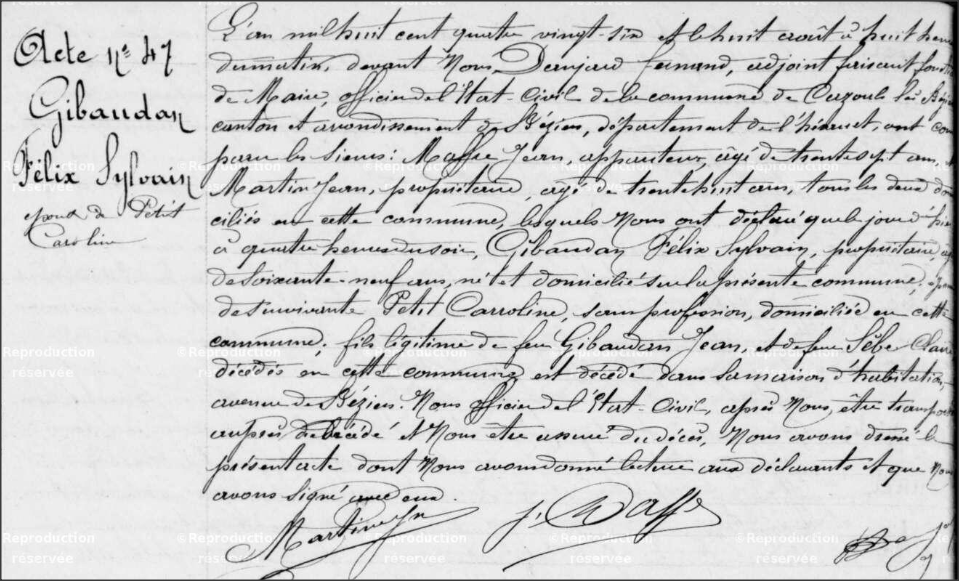 Acte n° 47
Gibaudan
Félix Sylvain
époux de Petit
Caroline
L'an mil huit cent quatre vingt-six et le huit août à huit heu
du matin, devant Nous, fernand, adjoint faisant fonc
de Maire, officier de l'Etat-Civil de la commune de Cazouls lès Bézi
canton et arrondissement de Béziers, département de l'hérault, ont com
paru les sieurs: Maffre Jean, appariteur, âgé de trente sept ans,
Martin Jean, propriétaire, âgé de trente huit ans, tous les deux do
ciliés en cette commune, lesquels Nous ont déclaré que le jour d'hie
à quatre heures du soir, Gibaudan Félix Sylvain, propriétaire, âg
de soixante-neuf ans, né et domicilié sur la présente commune, épou
de survivante Petit Carroline, sans profession, domiciliée en cette
commune; fils légitime de feu Gibaudan Jean, et de feue Sèbe Clair
décédés en cette commune est décédé dans sa maison d'habitation,
avenue de Béziers. Nous officier de l'Etat-Civil, après Nous, être transpor
auprès du décédé et Nous être assuré du décès, Nous avons dressé le
présent acte dont Nous avons donné lecture aux déclarants et que Nou
avons signé avec eux
Martin Jn J. Maffre
©Reproduction réservée